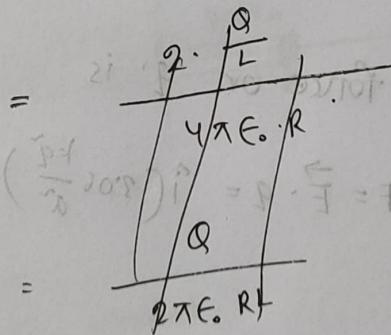 = 2 · Q/L / 4πε₀ · R
= Q / 2πε₀ RL